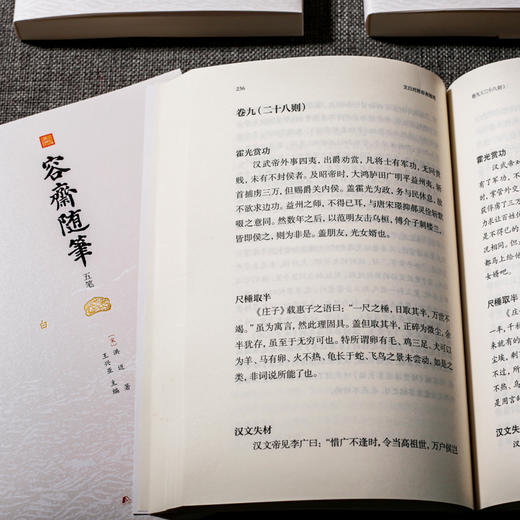 容齋随筆
五笔
[宋] 洪迈 著
王兴亚 主编
236
卷九（二十八则）
霍光赏功
汉武帝外事四夷，出爵劝赏，凡将士有军功，无问贵
贱，未有不封侯者。及昭帝时，大鸿胪田广明平益州夷，斩
首捕虏三万，但赐爵关内侯。盖霍光为政，务与民休息，故
不欲求边功。益州之师，不得已耳，与唐宋璟抑郝灵佺斩默
啜之意同。然数年之后，以范明友击乌桓，傅介子刺楼兰，
皆即侯之，则为非是。盖明友，光女婿也。
尺棰取半
《庄子》载惠子之语曰：“一尺之棰，日取其半，万世不
竭。”虽为寓言，然此理固具。盖但取其半，正碎为微尘，余
半犹存，虽至于无穷可也。特所谓卵有毛、鸡三足、犬可以
为羊、马有卵、火不热、龟长于蛇、飞鸟之景未尝动，如是之
类，非词说所能了也。
汉文失材
汉文帝见李广曰：“惜广不逢时，令当高祖世，万户侯岂
卷九（二十八则）
霍光赏功
汉武
有了军功，不
尺棰取半
《庄
汉文失材